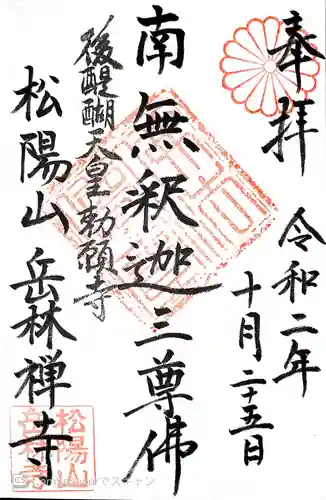 奉拝
令和二年
十月二十五日
南無釈迦三尊佛
後醍醐天皇勅願寺
松陽山岳林禅寺
松陽山
岳林寺
CS CamScannerでスキャン